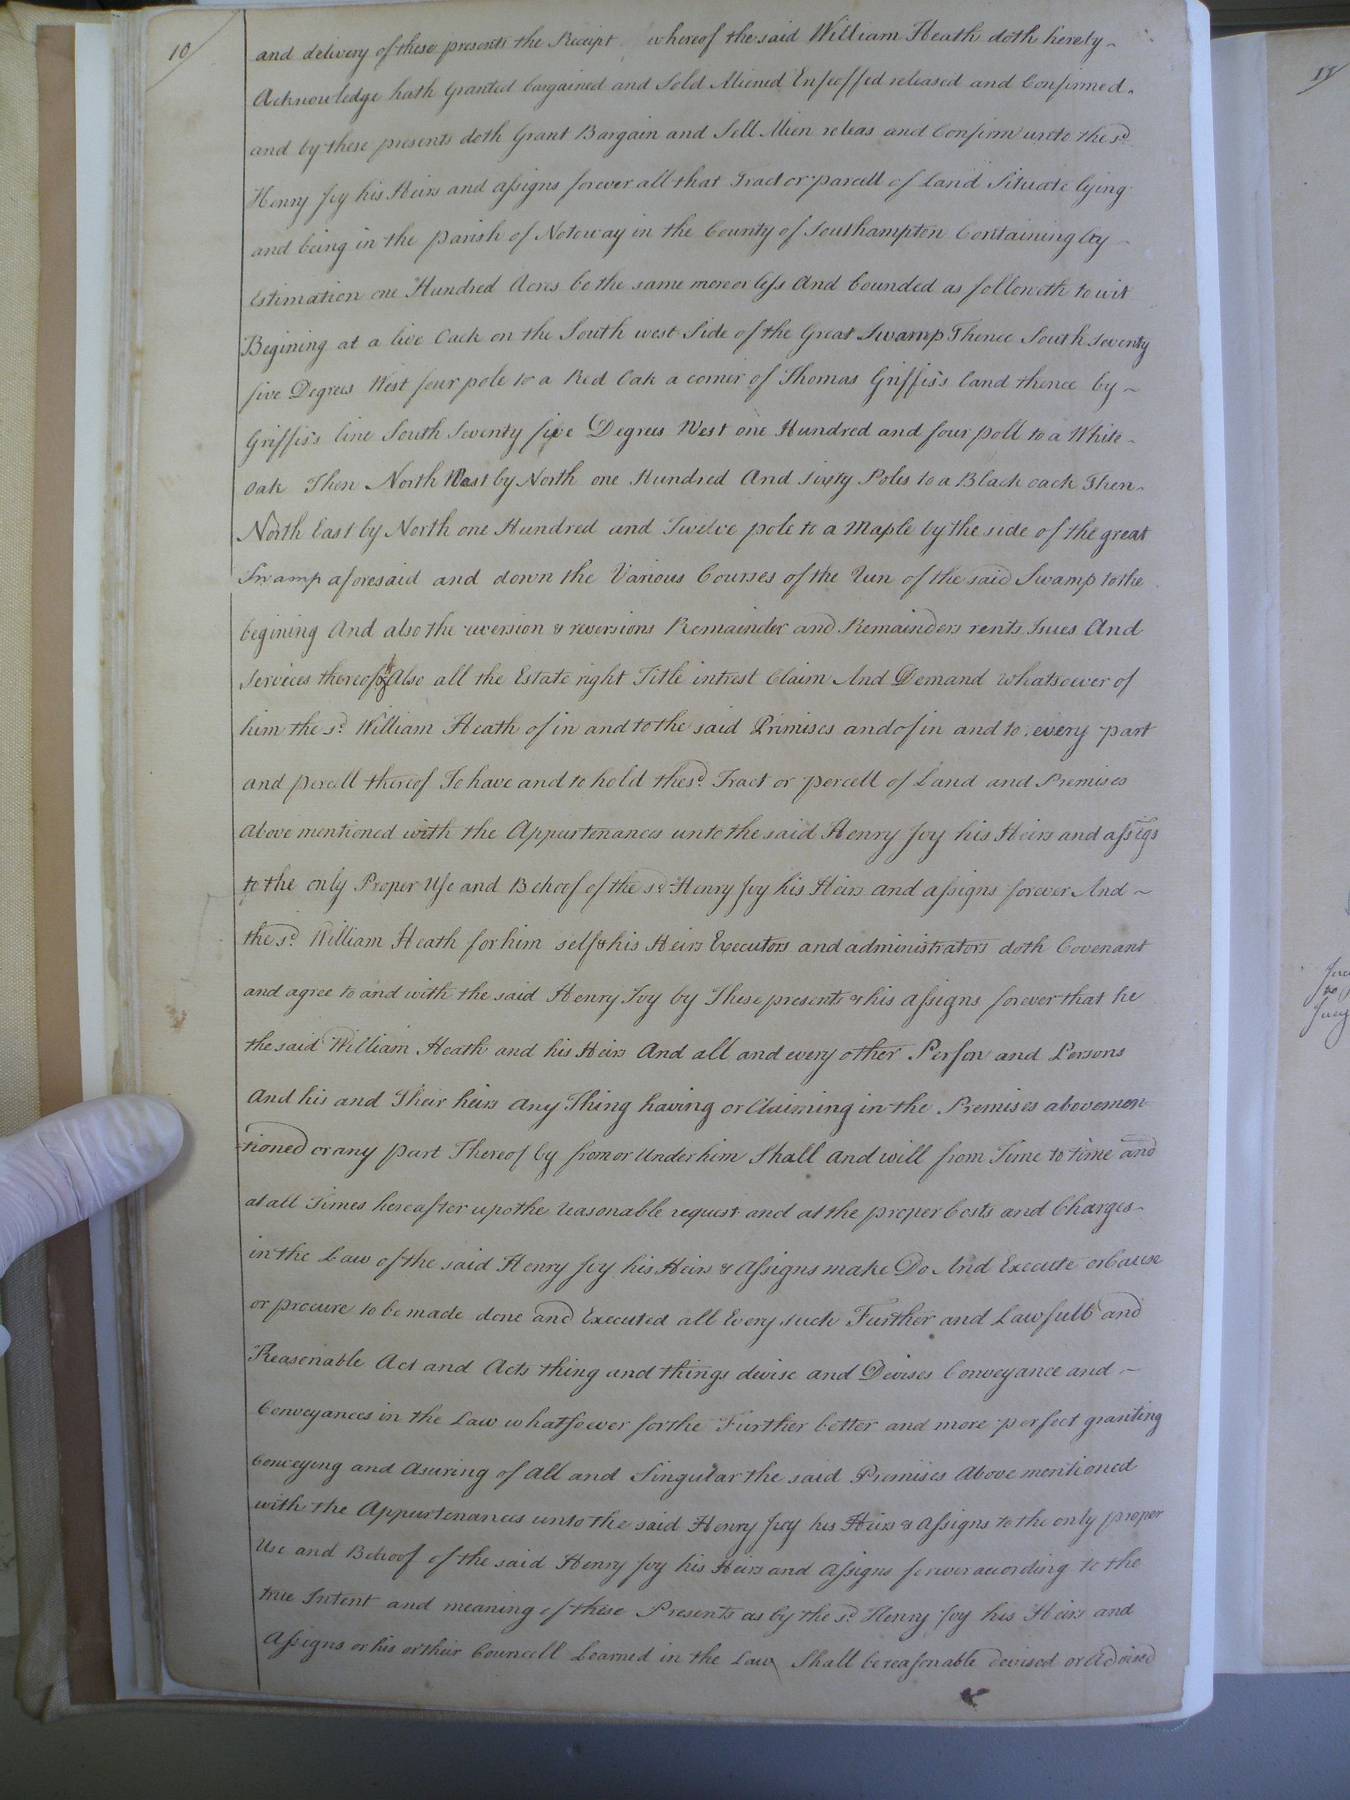 10
and delivery of these presents the Receipt whereof the said William Heath doth hereby
Acknowledge hath Granted bargained and Sold Aliened Enfeoffed released and Confirmed.
and by these presents doth Grant Bargain and Sell Alien releas and Confirm unto the sd
Henry Joy his Heirs and assigns forever all that Tract or parcell of Land Situate lying
and being in the parish of Notoway in the County of Southampton Containing by
Estimation one Hundred Acres be the same more or less And bounded as followeth to wit
Begining at a live Oack on the South west Side of the Great Swamp Thence South seventy
five Degrees West four pole to a Red Oak a corner of Thomas Griffis's land thence by ~
Griffis's line South Seventy five Degrees West one Hundred and four poll to a White
oak Then North West by North one Hundred And sixty Poles to a Black oack Then
North East by North one Hundred and Twelve pole to a Maple by the side of the great
Swamp aforesaid and down the Various Courses of the Run of the said Swamp to the
begining And also the reversion & reversions Remainder and Remainders rents Isues And
Services thereof & Also all the Estate right Title intrest Claim And Demand whatsoever of
him the sd William Heath of in and to the said Primises and of in and to every part
and percell thereof To have and to hold the sd Tract or percell of Land and Premises
Above mentioned with the Appurtenances unto the said Henry Joy his Heirs and assigs
to the only Proper Use and Behoof of the sd Henry Joy his Heirs and assigns forever And ~
the sd William Heath for him self & his Heirs Executors and administrators doth Covenant
and agree to and with the said Henry Joy by These presents & his assigns forever that he
the said William Heath and his Heirs And all and every other Person and Persons
And his and Their heirs any Thing having or Claiming in the Premises above men
=tioned or any part Thereof by from or Under him Shall and will from Time to time and
at all Times hereafter upo the reasonable request and at the proper Costs and Charges
in the Law of the said Henry Joy his Heirs & Assigns make Do And Execute or Cause
or procure to be made done and Executed all Every such Further and Lawfull and
Reasonable Act and Acts thing and things devise and Devises Conveyance and ~
Conveyances in the Law whatsoever for the Further better and more perfect granting
Conveying and Asuring of all and Singular the said Premises Above mentioned
with the Appurtenances unto the said Henry Joy his Heirs & Assigns to the only proper
Use and Behoof of the said Henry Joy his Heirs and Assigns forever according to the
true Intent and meaning of these Presents as by the sd Henry Joy his Heirs and
Assigns or his or their Councell Learned in the Law Shall be reasonable devised or Advised